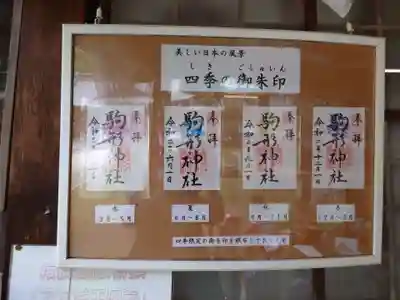 美しい日本の風景
しき ごしゅいん
四季の御朱印
奉拝
駒形神社
奉拝
駒形神社
令和二年六月一日
奉拝
駒形神社
令和二年九月一日
奉拝
駒形神社
令和二年十二月一日
春
3月~5月
夏
6月~8月
秋
9月~11月
冬
12月~2月